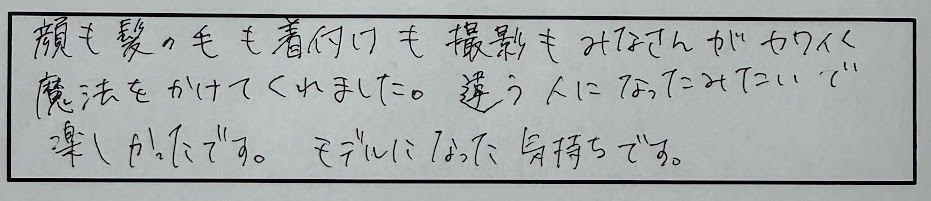 顔も髪の毛も着付けも撮影もみなさんがカワイく
魔法をかけてくれました。違う人になったみたいで
楽しかったです。モデルになった気持ちです。